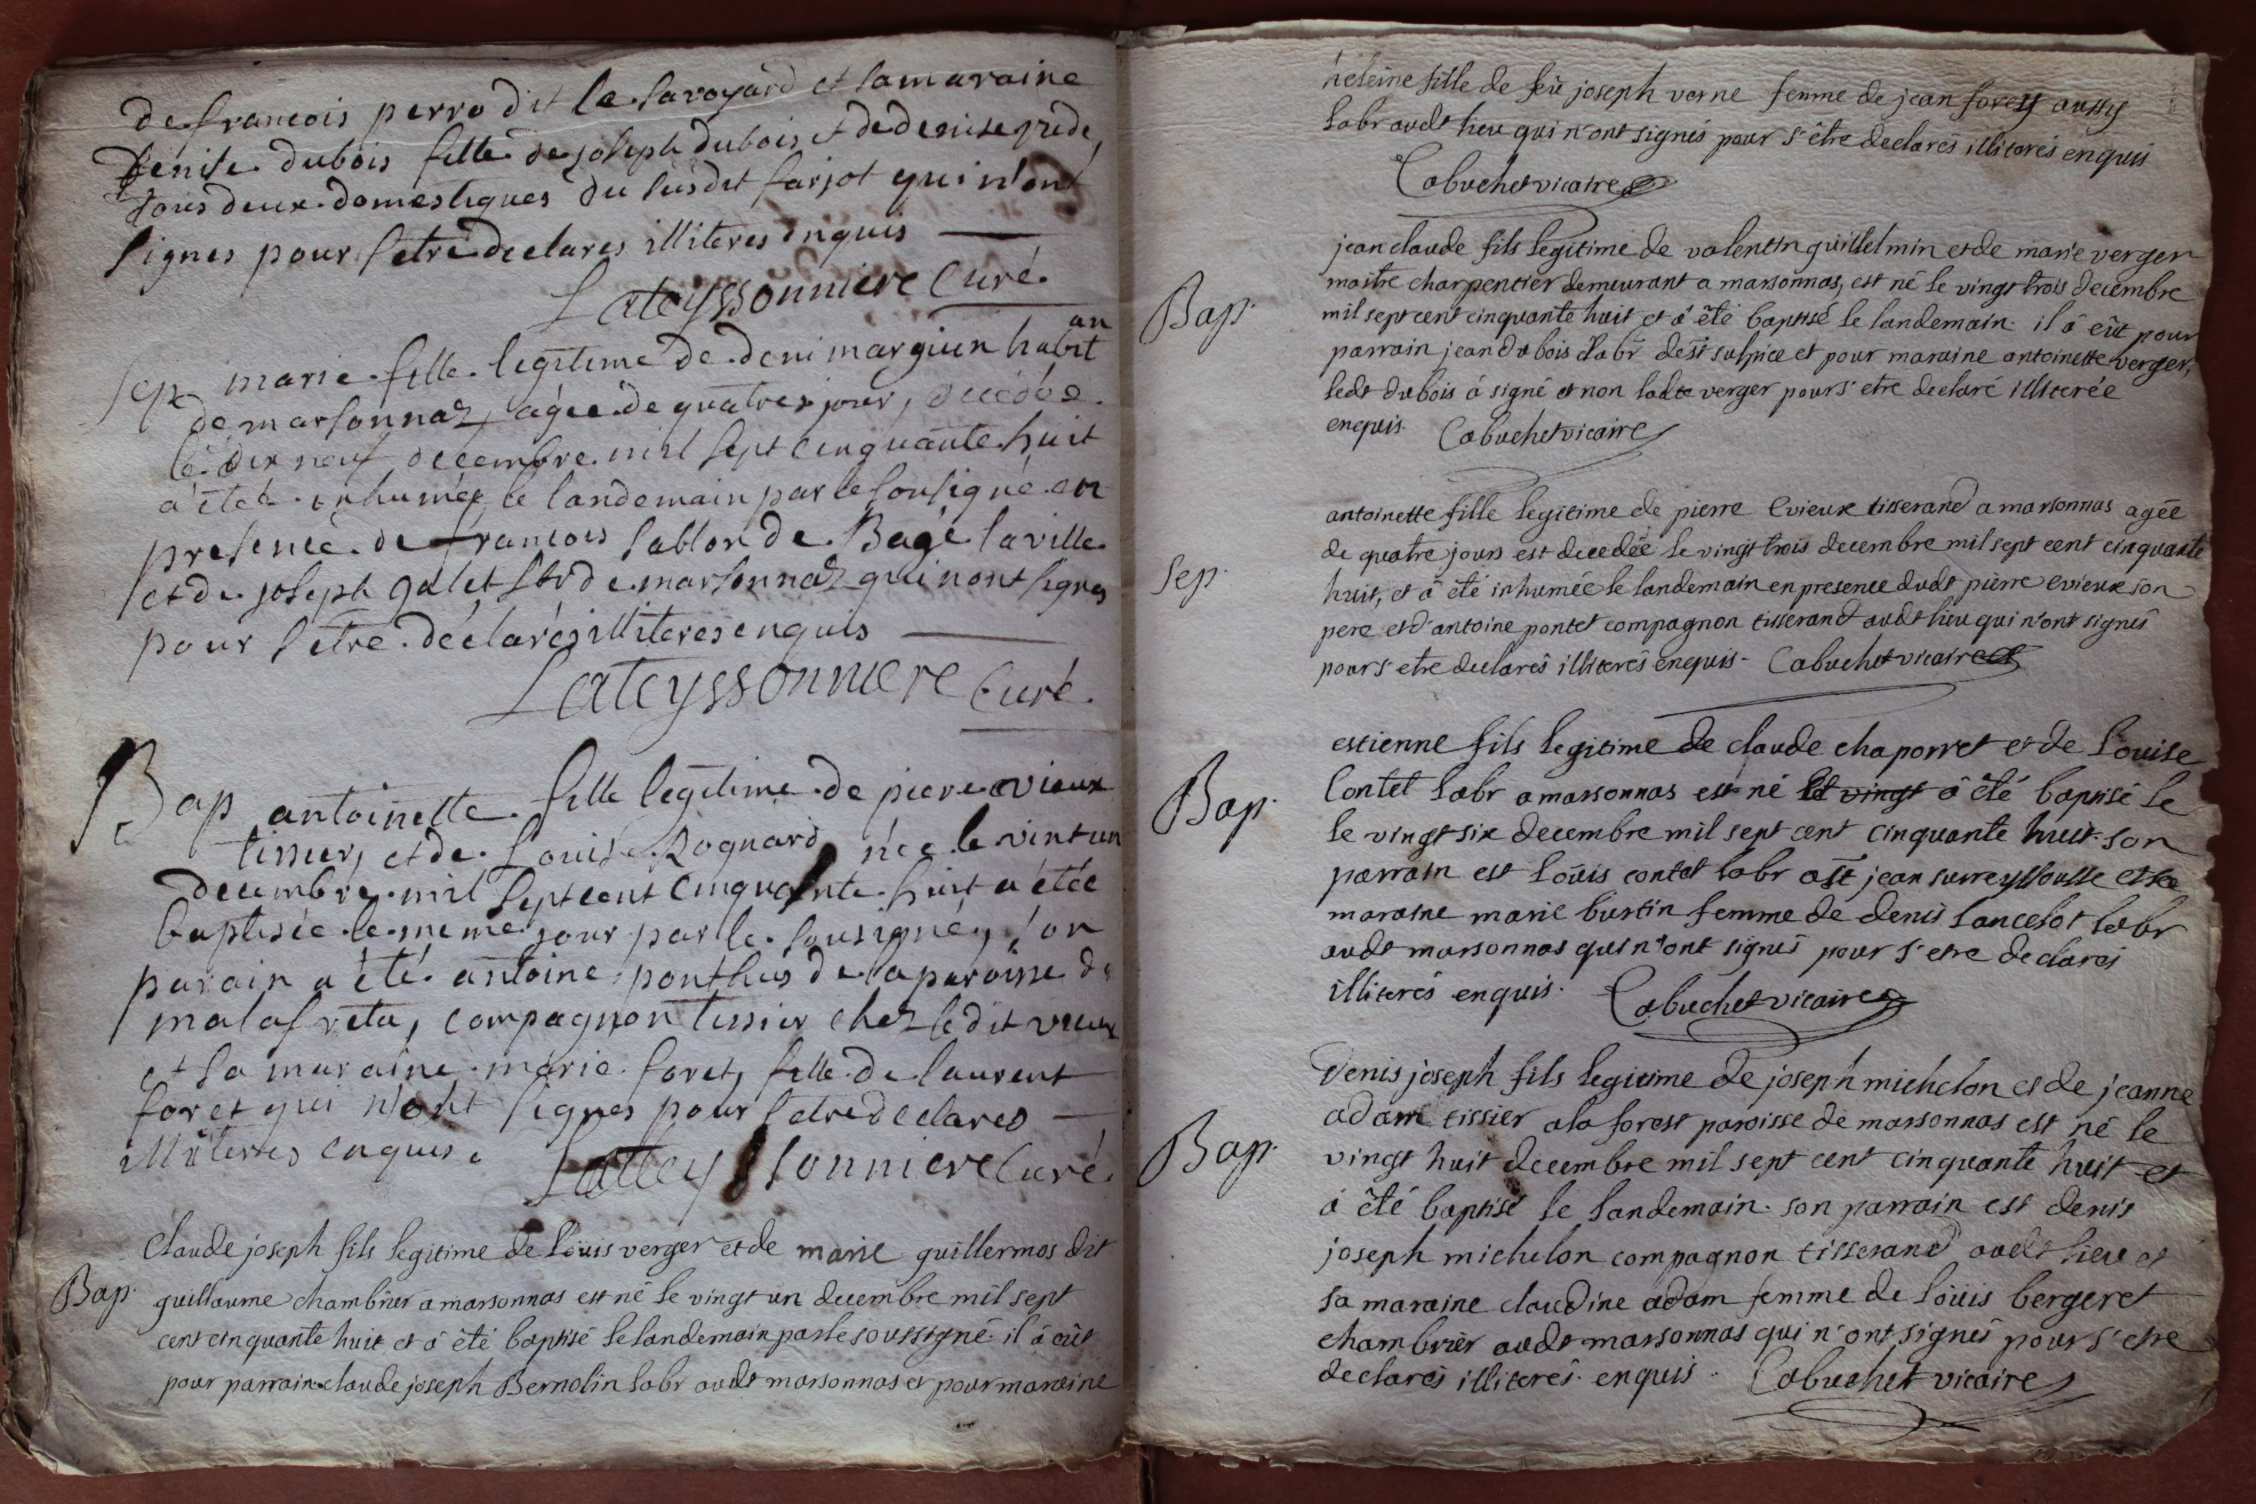 de francois perro dit le savoyard et sa maraine
denise dubois fille de joseph dubois et de denise
tous deux domestiques du susdit farjot qui n'ont
signes pour s'etre declares illiteres enquis
Lateyssonniere Curé.
Sep marie fille legitime de deni margiien habit an
de marsonnaz, agée de quatres jour, decedée
le dix neuf decembre mil sept cinquante huit
a étée inhumée le landemain par le sousigné en
presence de francois sablon de Bagé la ville
et de joseph galet lbr de marsonnaz qui n'ont signes
pour s'etre déclarés illiteres enquis
Lateyssonniere Curé.
Bap antoinette fille legitime de piere vieux
tissier, et de Louise Roguard née le vint un
decembre mil sept cent cinquante huit a étée
baptisée le meme jour par le sousigné, son
parain a été antoine ponthus de la paroisse de
malafreta, compagnon tissier chez le dit vieux
et sa maraine marie foret, fille de laurent
foret qui n'ont signes pour s'etre declares
illiteres enquis.
Lateyssonniere Curé.
Claude joseph fils legitime de Loüis verger et de marie guillermas dit
Bap. guillaume chambrier a marsonnas est né le vingt un decembre mil sept
cent cinquante huit et á êté baptisé le landemain par le soussigné. il á eût
pour parrain claude joseph Bernolin labr audt marsonnas et pour maraine
heleine fille de feü joseph verne femme de jean forey aussy
labr audt lieu qui n'ont signés pour s'être declarés illiterés enquis
Cabuchet vicaire
jean claude fils legitime de valentin guillelmin et de marie verger
Bap. maitre charpentier demeurant a marsonnas, est né le vingt trois decembre
mil sept cent cinquante huit et á êté baptisé le landemain. il á eût pour
parrain jean dubois labr de st sulpice et pour maraine antoinette verger,
ledt dubois á signé et non ladte verger pour s'etre declaré illiterée
enquis. Cabuchet vicaire
antoinette fille legitime de pierre Evieux tisserand a marsonnas agée
de quatre jours est decedée le vingt trois decembre mil sept cent cinquante
Sep. huit, et á êté inhumée le landemain en presence dudt pierre evieux son
pere et d'antoine pontet compagnon tisserand audt lieu qui n'ont signés
pour s'etre declarés illiterés enquis. Cabuchet vicaire
estienne fils legitime de claude chaporret et de Loüise
Bap. Contet labr a marsonnas est né le vingt á êté baptisé le
le vingt six decembre mil sept cent cinquante huit. son
parrain est Loüis contet labr a st jean sur reyssousse et sa
maraine marie burtin femme de denis lancelot labr
audt marsonnas qui n'ont signés pour s'etre declarés
illiterés enquis. Cabuchet vicaire
Denis joseph fils legitime de joseph michelon et de jeanne
Bap. adam tissier a la forest paroisse de marsonnas est né le
vingt huit decembre mil sept cent cinquante huit et
á êté baptisé le landemain. son parrain est denis
joseph michelon compagnon tisserand audt lieu et
sa maraine claudine adam femme de Loüis bergeret
chambrier audt marsonnas qui n'ont signés pour s'etre
declarés illiterés. enquis. Cabuchet vicaire